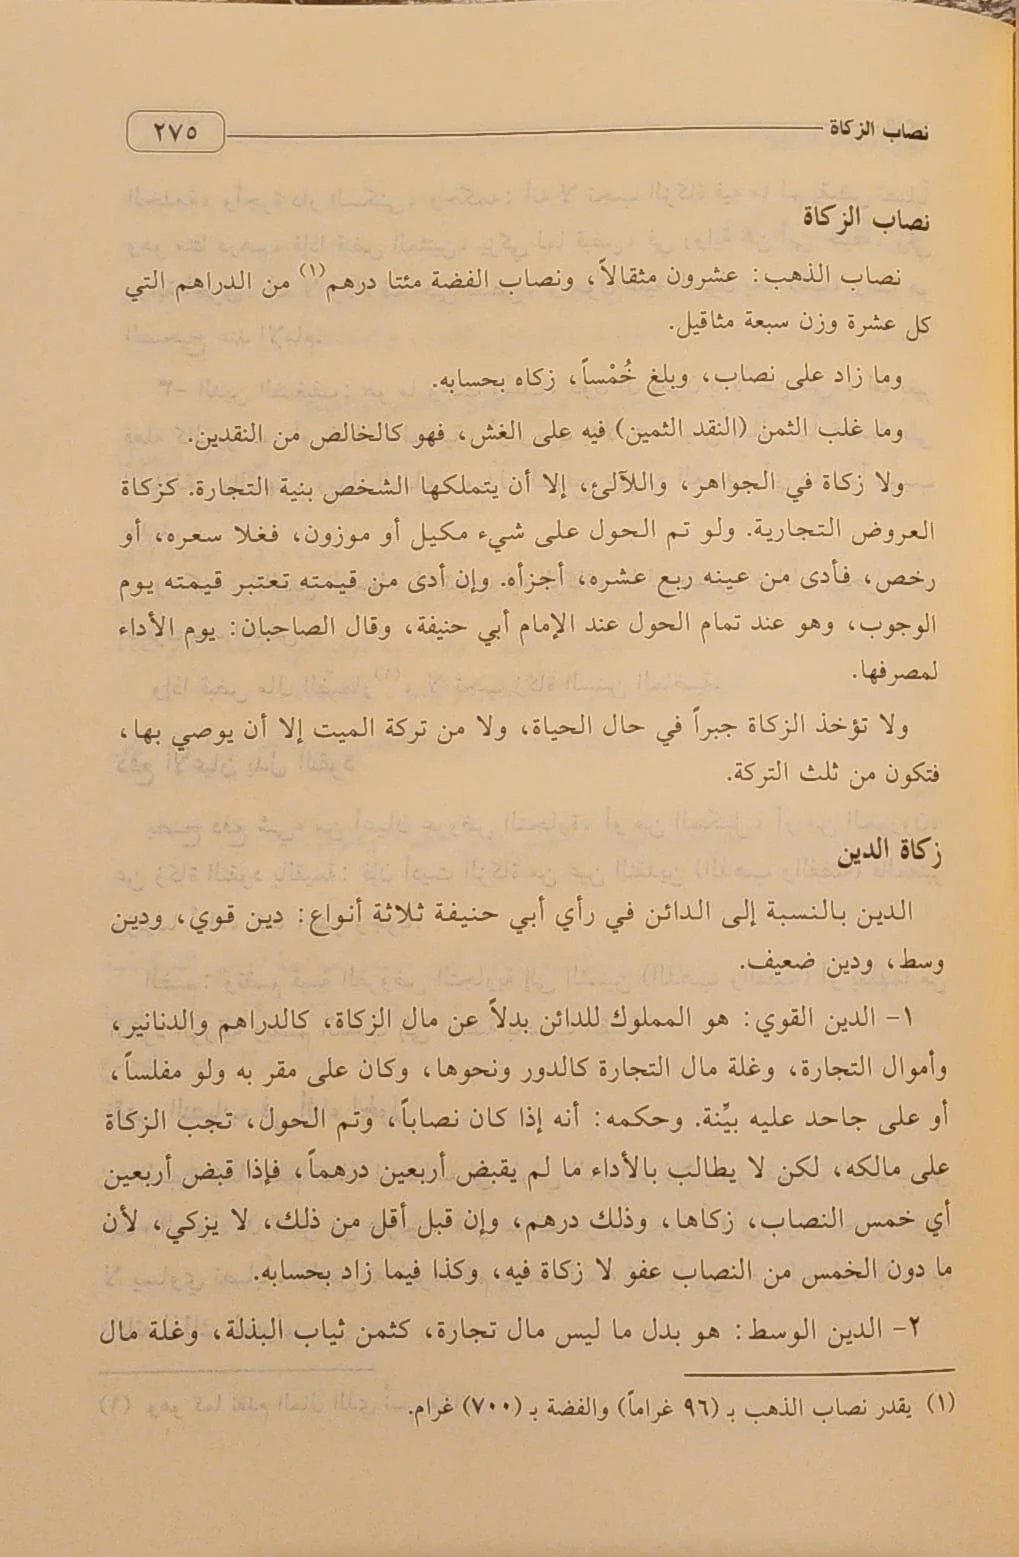 نصاب الزكاة
٢٧٥
نصاب الزكاة
نصاب الذهب: عشرون مثقالاً، ونصاب الفضة مئتا درهم(١) من الدراهم التي
كل عشرة وزن سبعة مثاقيل.
وما زاد على نصاب، وبلغ خُمْساً، زكاه بحسابه.
وما غلب الثمن (النقد الثمين) فيه على الغش، فهو كالخالص من النقدين.
ولا زكاة في الجواهر، واللآلئ، إلا أن يتملكها الشخص بنية التجارة. كزكاة
العروض التجارية. ولو تم الحول على شيء مكيل أو موزون، فغلا سعره، أو
رخص، فأدى من عينه ربع عشره، أجزأه. وإن أدى من قيمته تعتبر قيمته يوم
الوجوب، وهو عند تمام الحول عند الإمام أبي حنيفة، وقال الصاحبان: يوم الأداء
لمصرفها.
ولا تؤخذ الزكاة جبراً في حال الحياة، ولا من تركة الميت إلا أن يوصي بها،
فتكون من ثلث التركة.
زكاة الدين
الدين بالنسبة إلى الدائن في رأي أبي حنيفة ثلاثة أنواع: دين قوي، ودين
وسط، ودين ضعيف.
١- الدين القوي: هو المملوك للدائن بدلاً عن مال الزكاة، كالدراهم والدنانير،
وأموال التجارة، وغلة مال التجارة كالدور ونحوها، وكان على مقر به ولو مفلساً،
أو على جاحد عليه بيِّنة. وحكمه: أنه إذا كان نصاباً، وتم الحول، تجب الزكاة
على مالكه، لكن لا يطالب بالأداء ما لم يقبض أربعين درهماً، فإذا قبض أربعين
أي خمس النصاب، زكاها، وذلك درهم، وإن قبل أقل من ذلك، لا يزكي، لأن
ما دون الخمس من النصاب عفو لا زكاة فيه، وكذا فيما زاد بحسابه.
٢- الدين الوسط: هو بدل ما ليس مال تجارة، كثمن ثياب البذلة، وغلة مال
(١) يقدر نصاب الذهب بـ (٩٦ غراماً) والفضة بـ (٧٠٠) غرام.